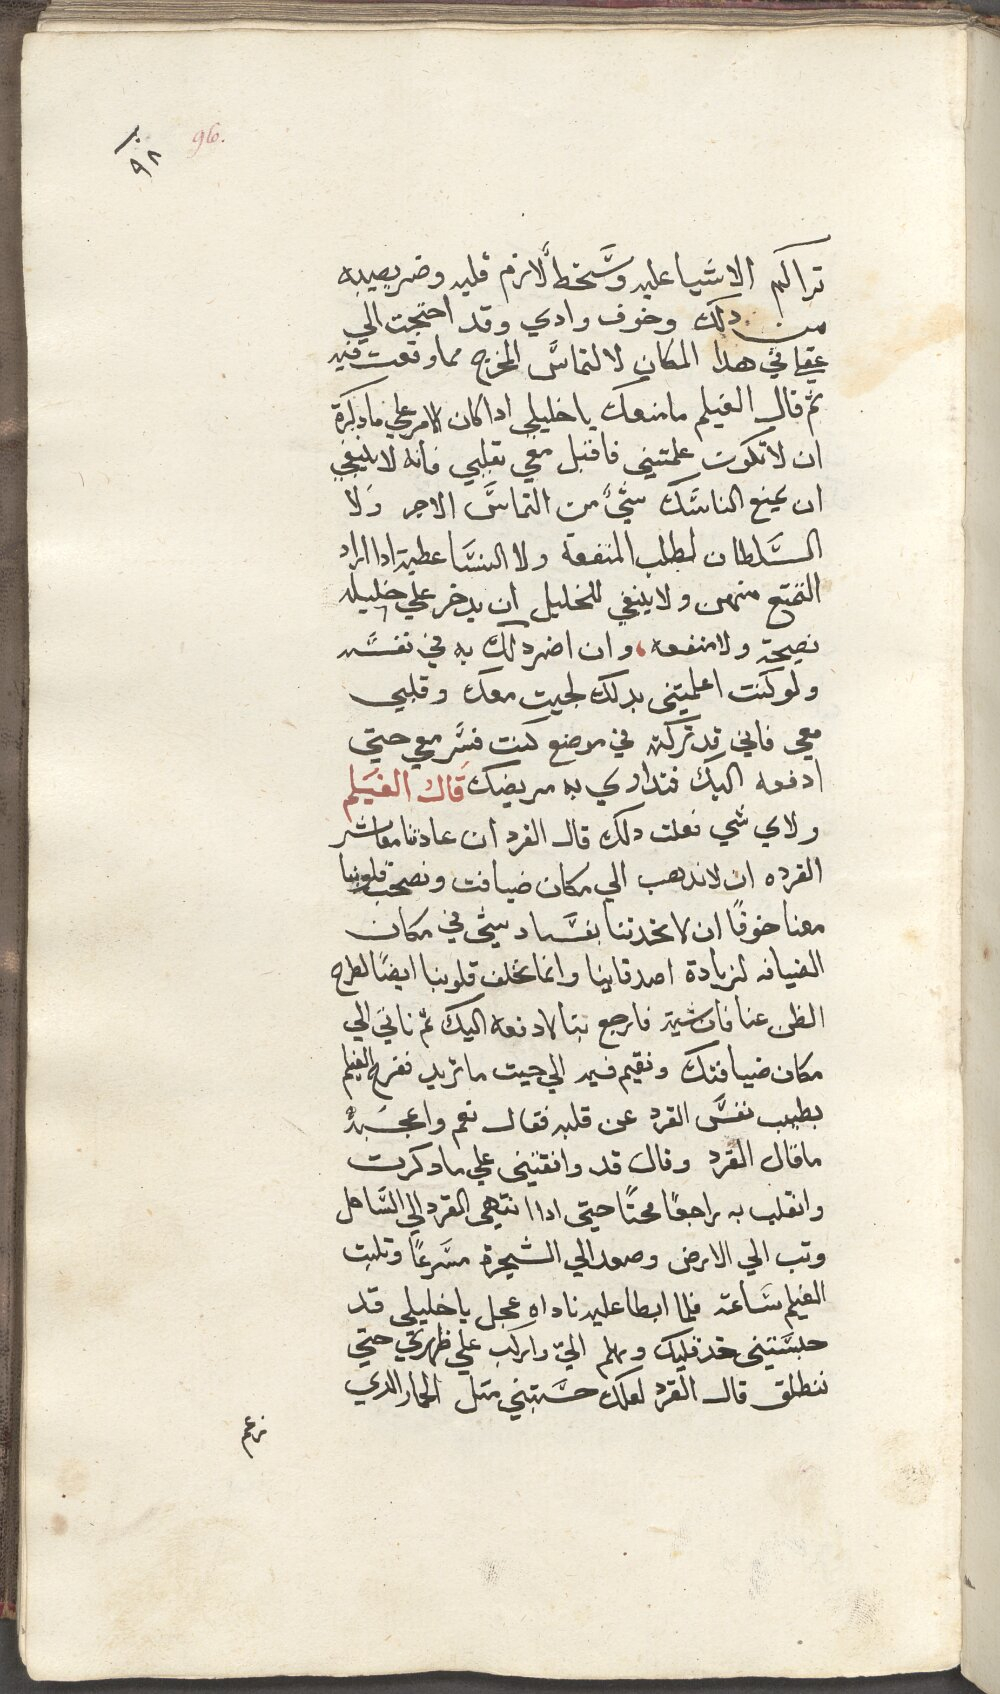 96.
٩٨
تراكم الاشيا عليه وسخط لازم قلبه وضر يصيبه
من دلك وخوف وادي وقد احتجت الي
عقلي في هدا المكان لالتماس المخرج مما وقعت فيه
ثم قال الغيلم ما منعك يا خليلي ادا كان الامر علي ما دكرة
ان لا تكون علمتني فاقبل معي بقلبي فانه لا ينبغي
ان يمنع الناسك شيء من التماس الاجر ولا
السلطان لطلب المنفعة ولا النسا عطية ادا اراد
التمتع منهن ولا ينبغي للخليل ان يدخر علي خليله
نصيحة ولا منفعه وان اضر دلك به في نفسه
ولو كنت اعلمتني بدلك لجيت معك وقلبي
معي فاني قد تركته في موضع كنت فسر معي حتي
ادفعه اليك فتداوي به مريضك قال الغيلم
ولاي شي فعلت دلك قال القرد ان عادتنا معاشر
القرده ان لا ندهب الي مكان ضيافت ونصحب قلوبنا
معنا خوفًا ان لا تحدتنا بفساد شي في مكان
الضيافه لزيادة اصدقاينا وانما نخلف قلوبنا ايضًا لطرح
الظن عنا فان شيت فارجع بنا لادفعه اليك ثم ناتي الي
مكان ضيافتك ونقيم فيه الي حيت ما تريد ففرح الغيلم
بطيب نفس القرد عن قلبه فقال نعم واعجبه
ما قال القرد وقال قد وافقتني علي ما دكرت
وانقلب به راجعًا محتًا حتي ادا انتهي القرد الي الساحل
وتب الي الارض وصعد الي الشجرة مسرعًا وتلبت
الغيلم ساعة فلما ابطا عليه ناداه عجل يا خليلي قد
حبستني خد قلبك وهلم الي واركب علي ظهري حتي
ننطلق قال القرد لعلك حسبتني متل الحمار الدي
زعم